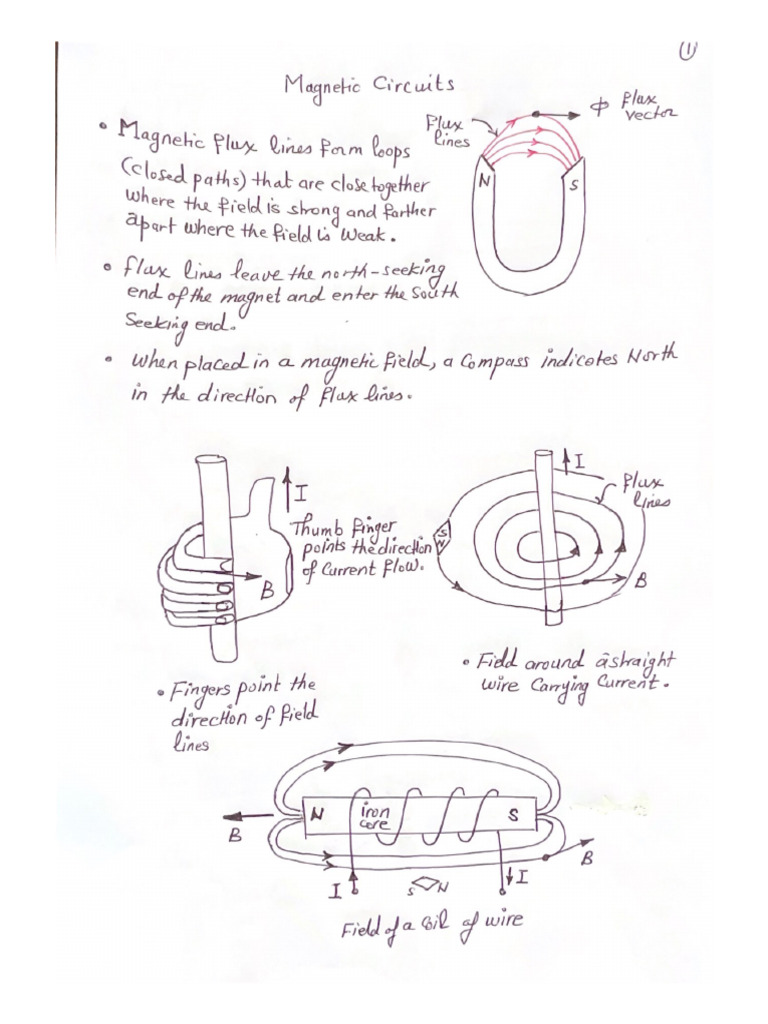 ①
Magnetic Circuits
• Magnetic flux lines form loops
(closed paths) that are close together
where the field is strong and farther
apart where the field is weak.
Flux
lines
ϕ flux
vector
N
S
• flux lines leave the north-seeking
end of the magnet and enter the South
Seeking end.
• When placed in a magnetic field, a Compass indicates North
in the direction of flux lines.
I
Thumb finger
points the direction
of Current flow.
B
• Fingers point the
direction of field
lines
I
flux
lines
S
N
B
• Field around a straight
wire Carrying Current.
N
iron
core
S
B
B
I
S N
I
Field of a Coil of wire